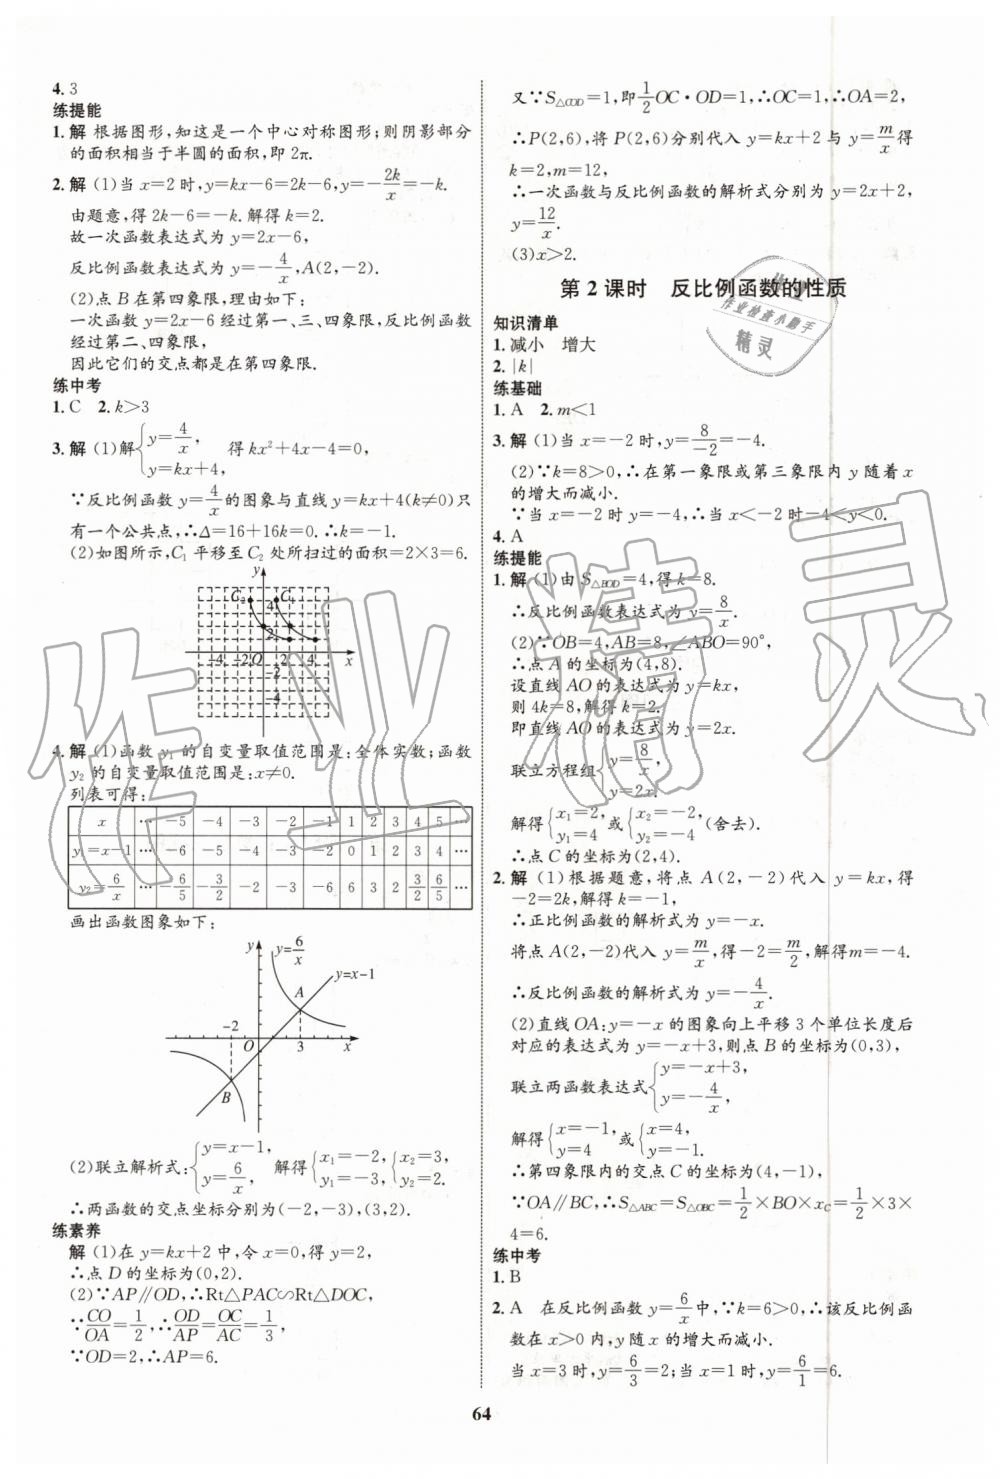 4. 3
练提能
1. 解 根据图形,知这是一个中心对称图形;则阴影部分
的面积相当于半圆的面积,即 2π.
2. 解 (1)当 x=2 时,y=kx-6=2k-6,y=-2k/x=-k.
由题意,得 2k-6=-k. 解得 k=2.
故一次函数表达式为 y=2x-6,
反比例函数表达式为 y=-4/x,A(2,-2).
(2)点 B 在第四象限,理由如下:
一次函数 y=2x-6 经过第一、三、四象限,反比例函数
经过第二、四象限,
因此它们的交点都在第四象限.
练中考
1. C 2. k>3
3. 解 (1)解{y=4/x, y=kx+4, 得 kx²+4x-4=0,
∵反比例函数 y=4/x 的图象与直线 y=kx+4(k≠0)只
有一个公共点,∴Δ=16+16k=0. ∴k=-1.
(2)如图所示,C₁ 平移至 C₂ 处所扫过的面积=2×3=6.
y
C₂ 4 C₁
2
-4 -2 O 2 4 x
-2
-4
4. 解 (1)函数 y₁ 的自变量取值范围是:全体实数;函数
y₂ 的自变量取值范围是:x≠0.
列表可得:
x … -5 -4 -3 -2 -1 1 2 3 4 5 …
y₁=x-1 … -6 -5 -4 -3 -2 0 1 2 3 4 …
y₂=6/x … -6/5 -3/2 -2 -3 -6 6 3 2 3/2 6/5 …
画出函数图象如下:
y y=6/x
y=x-1
A
-2
3 x
B
(2)联立解析式:{y=x-1, y=6/x, 解得{x₁=-2, y₁=-3, {x₂=3, y₂=2.
∴两函数的交点坐标分别为(-2,-3),(3,2).
练素养
解 (1)在 y=kx+2 中,令 x=0,得 y=2,
∴点 D 的坐标为(0,2).
(2)∵AP∥OD,∴Rt△PAC∽Rt△DOC,
∵CO/OA=1/2,∴OD/AP=OC/AC=1/3,
∵OD=2,∴AP=6.
又∵S△COD=1,即1/2OC·OD=1,∴OC=1,∴OA=2,
∴P(2,6),将 P(2,6)分别代入 y=kx+2 与 y=m/x 得
k=2,m=12,
∴一次函数与反比例函数的解析式分别为 y=2x+2,
y=12/x.
(3)x>2.
第 2 课时 反比例函数的性质
作业检查小助手
精灵
知识清单
1. 减小 增大
2. |k|
练基础
1. A 2. m<1
3. 解 (1)当 x=-2 时,y=8/-2=-4.
(2)∵k=8>0,∴在第一象限或第三象限内 y 随着 x
的增大而减小.
∵当 x=-2 时 y=-4,∴当 x<-2 时-4<y<0.
4. A
练提能
1. 解 (1)由 S△BOD=4,得 k=8.
∴反比例函数表达式为 y=8/x.
(2)∵OB=4,AB=8,∠ABO=90°,
∴点 A 的坐标为(4,8).
设直线 AO 的表达式为 y=kx,
则 4k=8,解得 k=2.
即直线 AO 的表达式为 y=2x.
联立方程组{y=8/x, y=2x.
解得{x₁=2, y₁=4 或{x₂=-2, y₂=-4 (舍去).
∴点 C 的坐标为(2,4).
2. 解 (1)根据题意,将点 A(2,-2)代入 y=kx,得
-2=2k,解得 k=-1,
∴正比例函数的解析式为 y=-x.
将点 A(2,-2)代入 y=m/x,得-2=m/2,解得m=-4.
∴反比例函数的解析式为 y=-4/x.
(2)直线 OA:y=-x 的图象向上平移 3 个单位长度后
对应的表达式为 y=-x+3,则点 B 的坐标为(0,3),
联立两函数表达式{y=-x+3, y=-4/x,
解得{x=-1, y=4 或{x=4, y=-1,
∴第四象限内的交点 C 的坐标为(4,-1),
∵OA∥BC,∴S△ABC=S△OBC=1/2×BO×x_C=1/2×3×
4=6.
练中考
1. B
2. A 在反比例函数 y=6/x 中,∵k=6>0,∴该反比例函
数在 x>0 内,y 随 x 的增大而减小.
当 x=3 时,y=6/3=2;当 x=1 时,y=6/1=6.
64
作业精灵